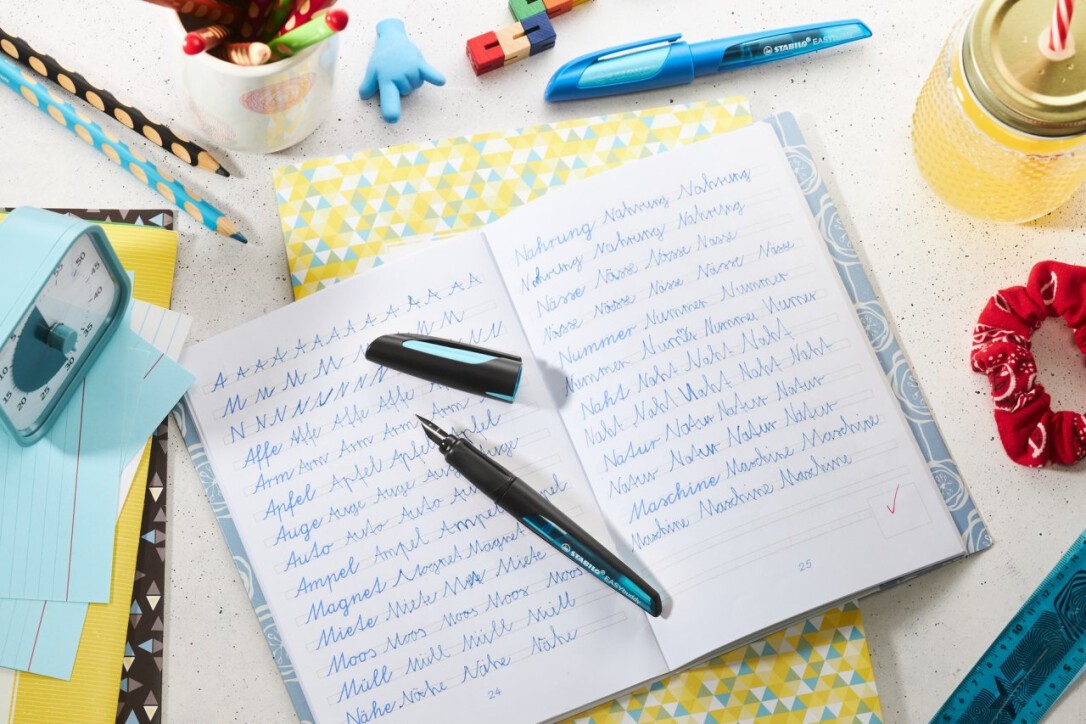 STABILO EASY
A A A A A A A A A A A
M M M M M M M
N N N N N N N N
Affe Affe Affe Affe
Arm Arm Arm Arm Arm
Apfel Apfel Apfel Apfel
Auge Auge Auge Auge
Auto Auto Auto
Ampel Ampel Ampel
Magnet Magnet Magnet
Miete Miete Miete Miete
Moos Moos Moos Moos
Müll Müll Müll Müll
Nähe Nähe Nähe Nähe
24
Nahrung Nahrung Nahrung
Nahrung Nahrung Nahrung
Nässe Nässe Nässe Nässe
Nässe Nässe Nässe Nässe Nässe
Nummer Nummer Nummer
Nummer Nummer Nummer Nummer
Naht Naht Naht Naht
Naht Naht Naht Naht Naht
Natur Natur Natur Natur
Natur Natur Natur Natur
Maschine Maschine Maschine
Maschine Maschine Maschine
25
STABILO EASY
55 50 45 40 35 30 25 20 15 10